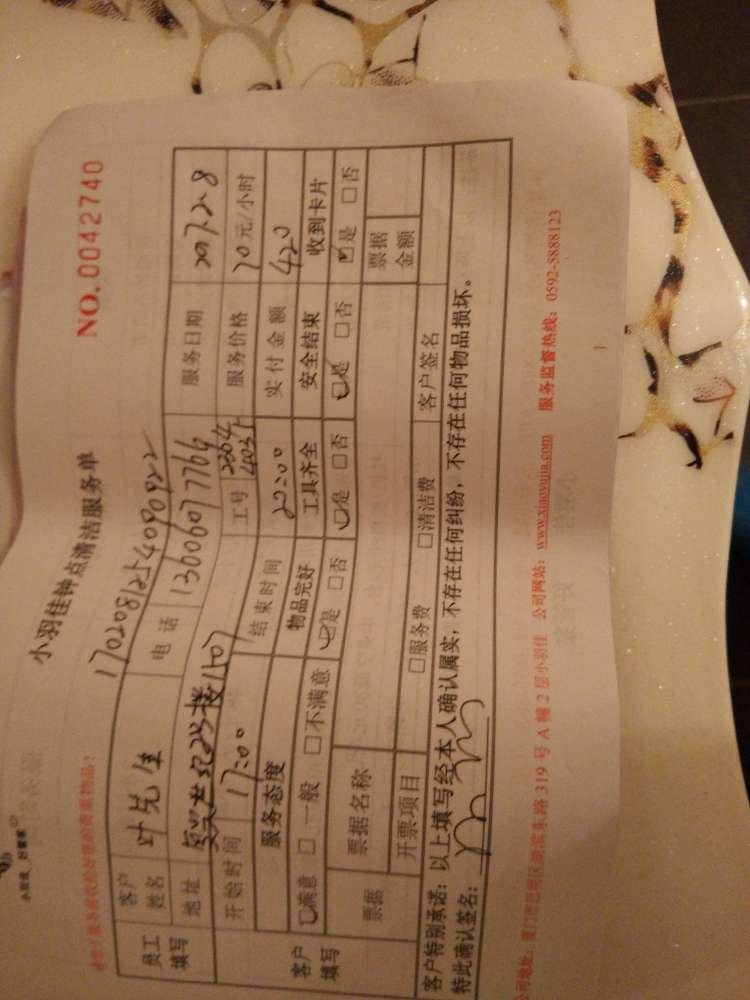 小羽佳 好管家
小羽佳钟点清洁服务单
NO.0042740
1702081254090922
员工填写
客户姓名 叶先生 电话 13006077764 服务日期 2017.2.8
地址 2号楼1507 工号 2304 4035 服务价格 70元/小时
开始时间 17:00 结束时间 20:00 实付金额 420
客户填写
服务态度 物品完好 工具齐全 安全结束 收到卡片
☑满意 □一般 □不满意 ☑是 □否 ☑是 □否 ☑是 □否 ☑是 □否
票据 票据名称 票据金额
开票项目 □服务费 □清洁费 客户签名
客户特别承诺：以上填写经本人确认属实，不存在任何纠纷，不存在任何物品损坏。
特此确认签名：
公司地址：厦门市思明区湖滨东路 319 号 A 幢 2 层小羽佳 公司网站：www.xiaoyujia.com 服务监督热线：0592-5888123